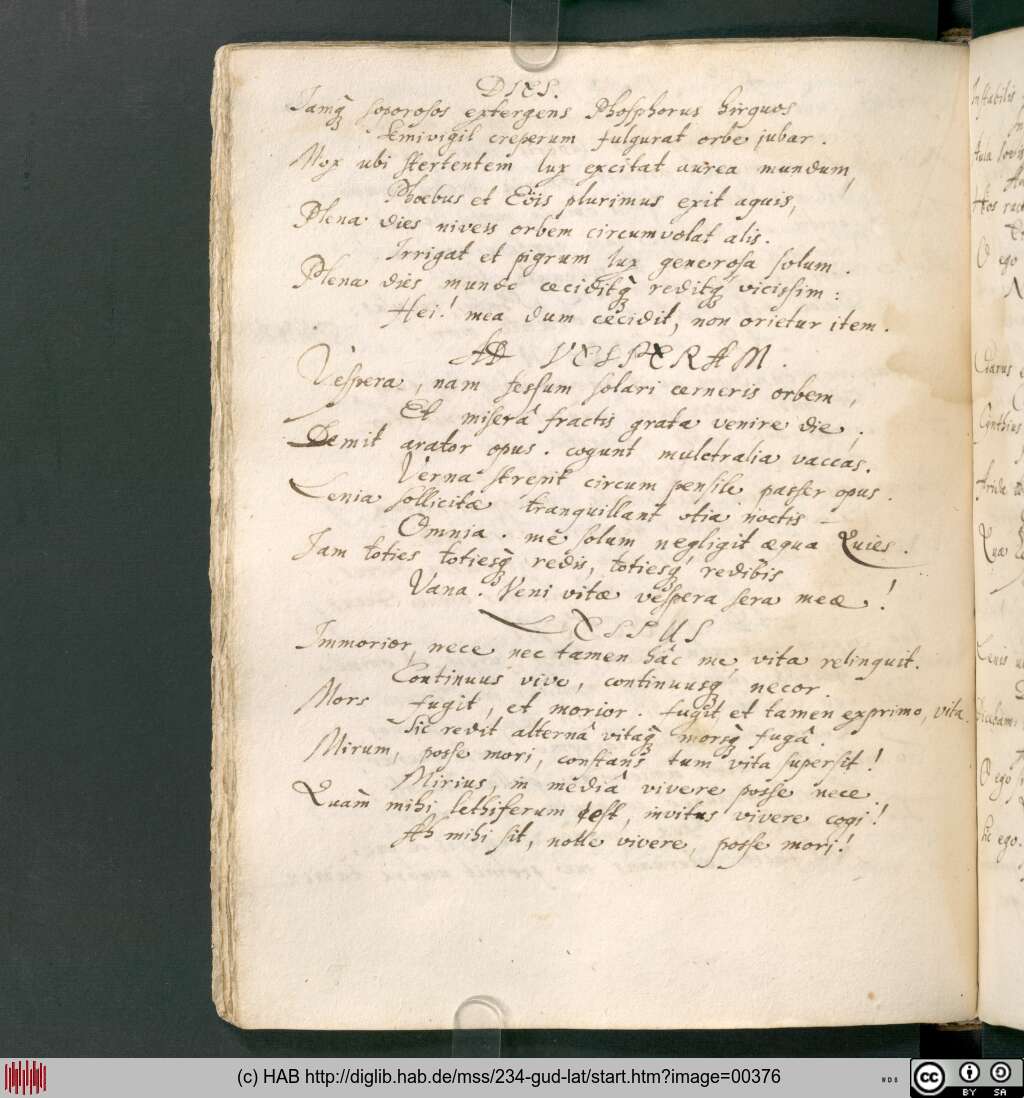 DIES.
Iamq́ soporosos extergens Phosphorus hirquos
Semivigil creperum fulgurat orbe jubar.
Mox ubi stertentem lux excitat aurea mundum,
Phoebus et Eöis plurimus exit aquis,
Plena dies niveis orbem circumvolat alis.
Irrigat et pigrum lux generosa solum.
Plena dies mundo ceciditq́ reditq́ vicissim:
Hei! mea dum cecidit, non orietur item.
AD VESPERAM.
Vespera, nam fessum solari cerneris orbem,
Et miserâ fractis grata venire die,
Demit arator opus. cogunt mulctralia vaccas.
Verna strepit circum pensile passer opus.
Lenia sollicitæ tranquillant otia noctis
Omnia. me solum negligit æqua Quies.
Iam toties totiesq́ redis, totiesq́ redibis
Vana. Veni vitæ vespera sera meæ!
LESSUS
Immorior nece nec tamen hâc me vita relinquit.
Continuus vivo, continuusq́ necor.
Mors fugit, et morior. fugit et tamen exprimo, vita.
Sic redit alternâ vitaq́ morsq́ fugâ.
Mirum, posse mori, constans tum vita supersit!
Mirius, in mediâ vivere posse nece.
Quàm mihi lethiferum est, invitus vivere cogi!
Ah mihi sit, nolle vivere, posse mori!
(c) HAB http://diglib.hab.de/mss/234-gud-lat/start.htm?image=00376
cc BY SA